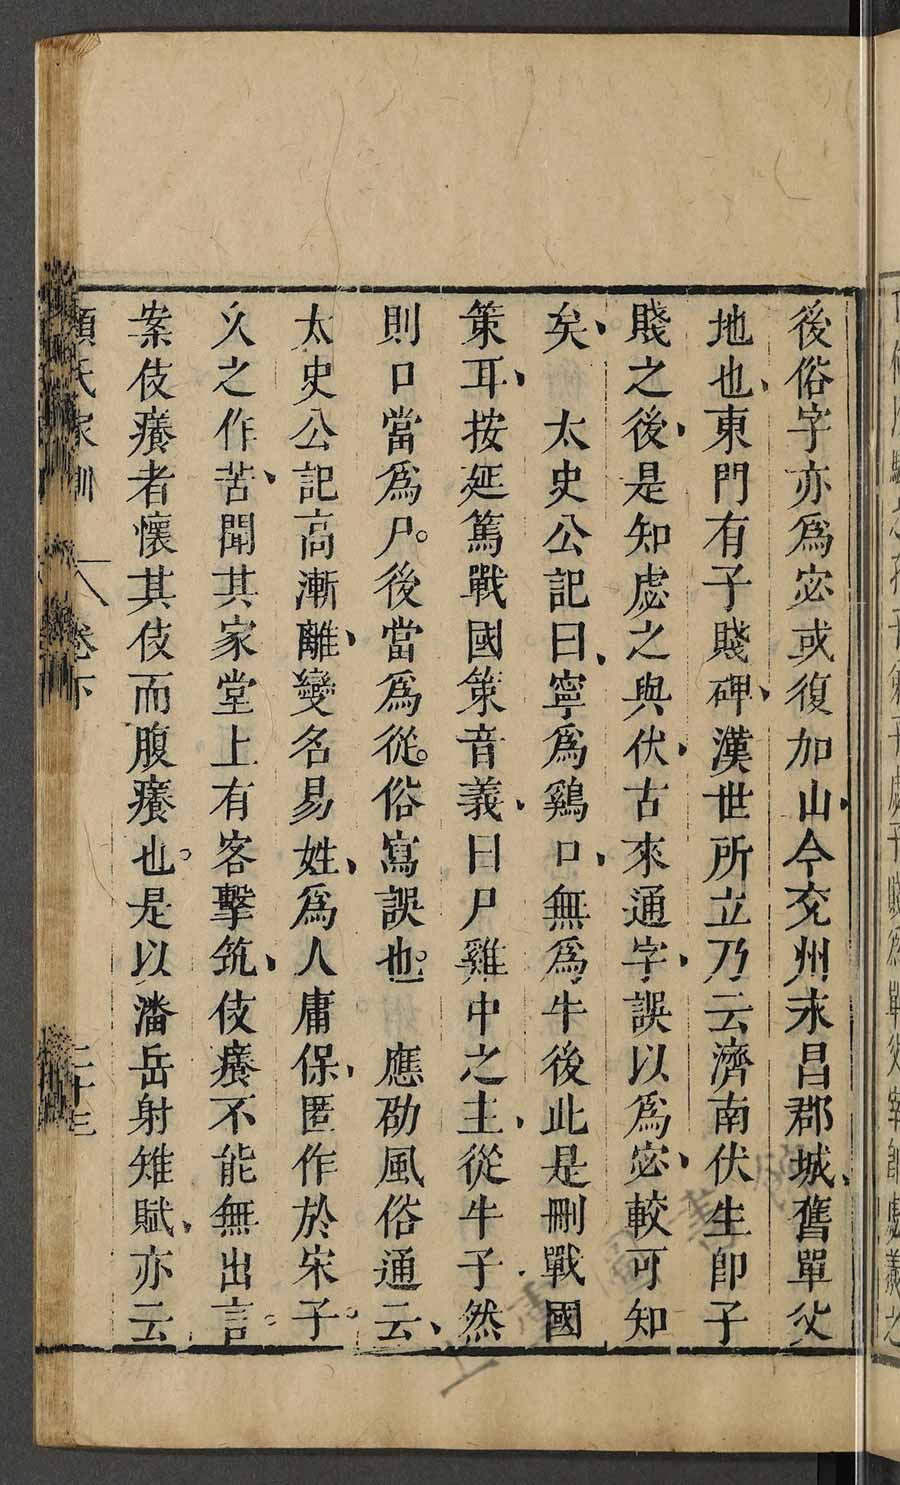 後俗字亦爲宓或復加山今兗州永昌郡城舊單父
地也東門有子賤碑漢世所立乃云濟南伏生卽子
賤之後是知虙之與伏古來通字誤以爲宓較可知
矣　太史公記曰寧爲鷄口無爲牛後此是刪戰國
策耳按延篤戰國策音義曰尸雞中之主從牛子然
則口當爲尸。後當爲從。俗寫誤也。　應劭風俗通云
太史公記高漸離變名易姓爲人庸保匿作於宋子。
久之作苦聞其家堂上有客擊筑伎癢不能無出言。
案伎癢者懷其伎而腹癢也。是以潘岳射雉賦亦云
顏氏家訓　卷下　二十三